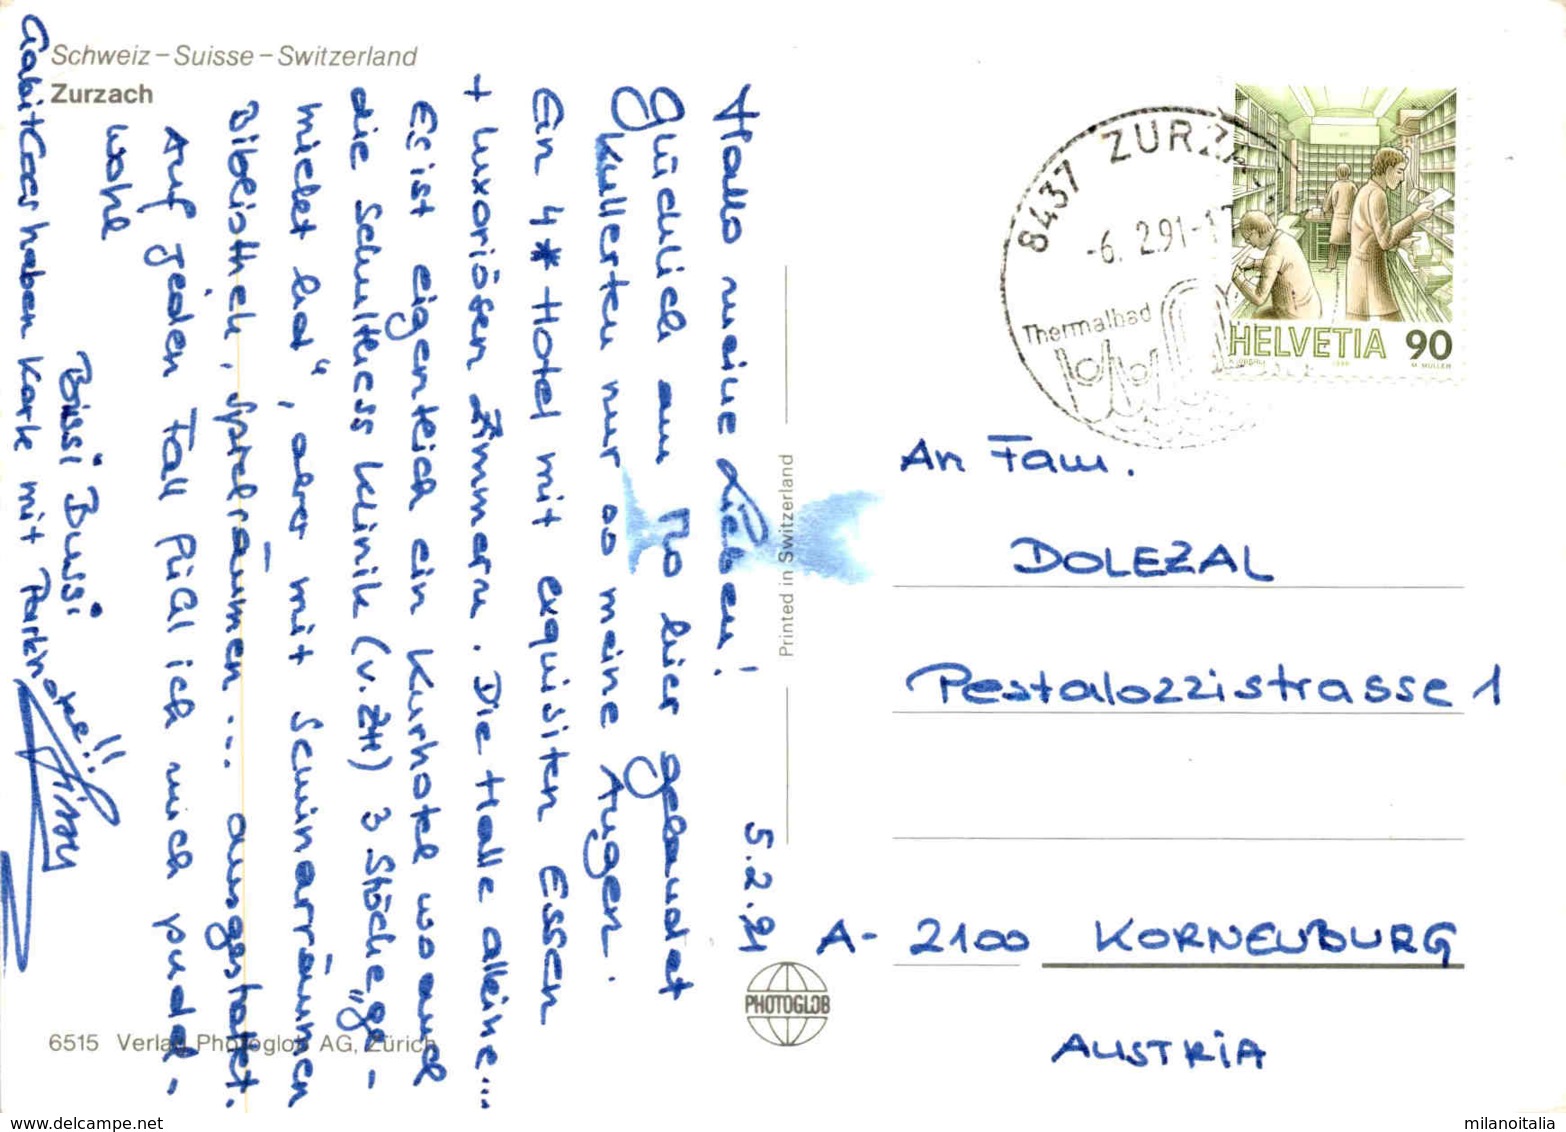 Schweiz – Suisse – Switzerland
Zurzach
5.2.91
Hallo meine Lieben!
Glücklich am Mo hier gelandet
kullerten nur so meine Augen.
Ein 4* Hotel mit exquisiten Essen
+ luxoriösen Zimmern. Die Halle alleine...
Es ist eigentlich ein Kurhotel wo auch
die Schulthess Klinik (v. ZH) 3 Stöcke „ge-
mietet hat“, aber mit Seminarräumen
Bibliothek, Spielräumen... ausgestattet.
Auf jeden Fall fühl ich mich pudel-
wohl
Bussi Bussi
haben Karte mit Parkhotel!!
8437 ZURZA
-6. 2.91-1
Thermalbad
HELVETIA 90
M. MULLER
An Fam.
DOLEZAL
Pestalozzistrasse 1
A- 2100 KORNEUBURG
AUSTRIA
Printed in Switzerland
PHOTOGLOB
6515 Verlag Photoglob AG, Zürich
milanoitalia